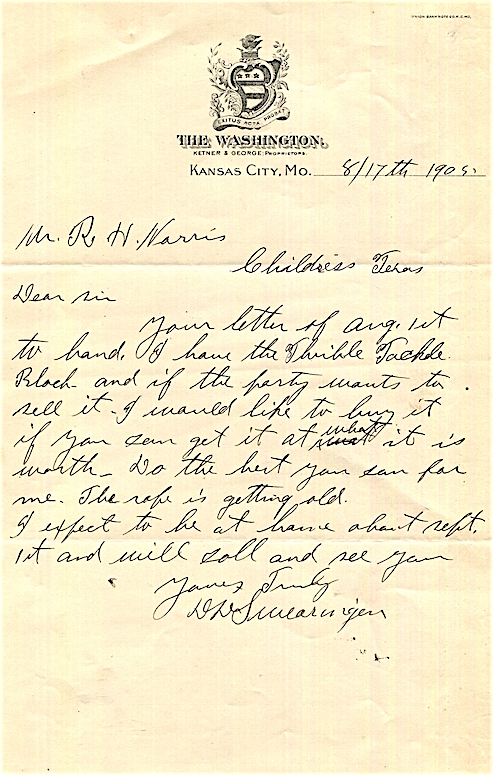 UNION BANK NOTE CO. K.C. MO.
EXITUS ACTA PROBAT
THE WASHINGTON.
KETNER & GEORGE, PROPRIETORS.
KANSAS CITY, MO. 8/17th 1905.
Mr. R. H. Norris
Childress Texas
Dear sir
Your letter of Aug. 1st
to hand. I have the Thrible Tackle
Block and if the party wants to
sell it I would like to buy it
if you can get it at what it is
worth - Do the best you can for
me. The rope is getting old.
I expect to be at home about sept.
1st and will call and see you
Yours Truly
DD Swearingen